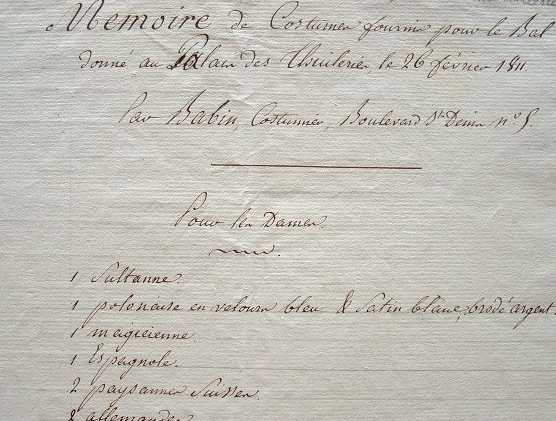 Memoire de Costumes fournis pour le Bal
donné au Palais des Thuileries, le 26 février 1811
Par Babin, Costumier, Boulevard St. Denis n° 5.
Pour les Dames.
1 Sultanne.
1 poloneuse en velours bleu & Satin blanc, brodé argent.
1 magicienne
1 Espagnole.
2 paysannes Suisses.
2 allemandes